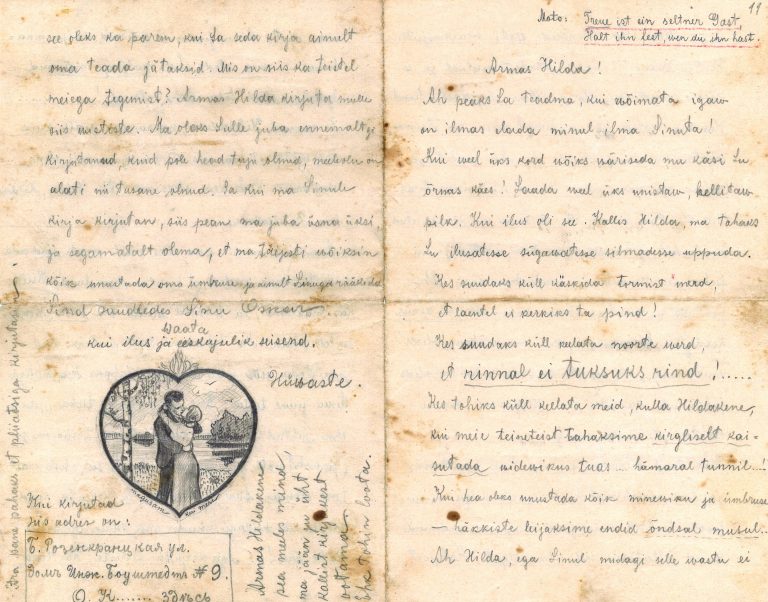 see oleks ka parem, kui Sa seda kirja ainult
oma teada jätaksid. Mis on siis ka teistel
meiega tegemist? Armas Hilda kirjuta mulle
siis wastuste. Ma oleks Sulle juba ennemaltgi
kirjutanud, kuid pole head tuju olnud, meeleolu on
alati nii tusane olnud. Ja kui ma Sinule
kirja kirjutan, siis pean ma juba üsna üksi,
ja segamatalt olema, et ma täiesti wõiksin
kõik unustada oma ümbruse ja ainult Sinuga rääkida
Sind suudledes Sinu Oskar.
Waata
kui ilus ja eeskujulik seisend.
Nüwaste.
magusam kui mesi
Kui kirjutad
siis adres on:
Б. Розенкранцкая ул.
Домъ Инж. Боуштедтъ № 9.
О. К....... Здѣсь
Armas Hildakene
sea meeles mind!
ma jään ju üht
kallist kirjakest
ootama
Ehk tohin loota.
Ära pane pahaks et pliiatsiga kirjutasin
11
Moto: Treue ist ein seltner Gast,
Halt ihn feet, wen du ihn hast.
Armas Hilda!
Ah peaks Sa teadma, kui wõimata igaw
on ilmas elada minul ilma Sinuta!
Kui weel üks kord wõiks wäriseda mu käsi Su
õrnas käes! Saada weel üks unistaw, hellitaw
pilk. Kui ilus oli see. Kallis Hilda, ma tahaks
Su ilusatesse sügawatesse silmadesse uppuda.
Kes suudaks küll käskida tormist merd,
et laentel ei kerkiks ta pind!
Kes suudaks küll keelata noorte werd,
et rinnal ei tuksuks rind!.....
Kes tohiks küll keelata meid, kulla Hildakene,
kui meie teineteist tahaksime kirgliselt kai-
sutada widewikus tuas... hämaral tunnil...!
Kui hea oleks unustada kõik minewiku ja ümbruse
— häkkiste leijaksime endid õndsal musul...
Ah Hilda, ega Sinul midagi selle wastu ei